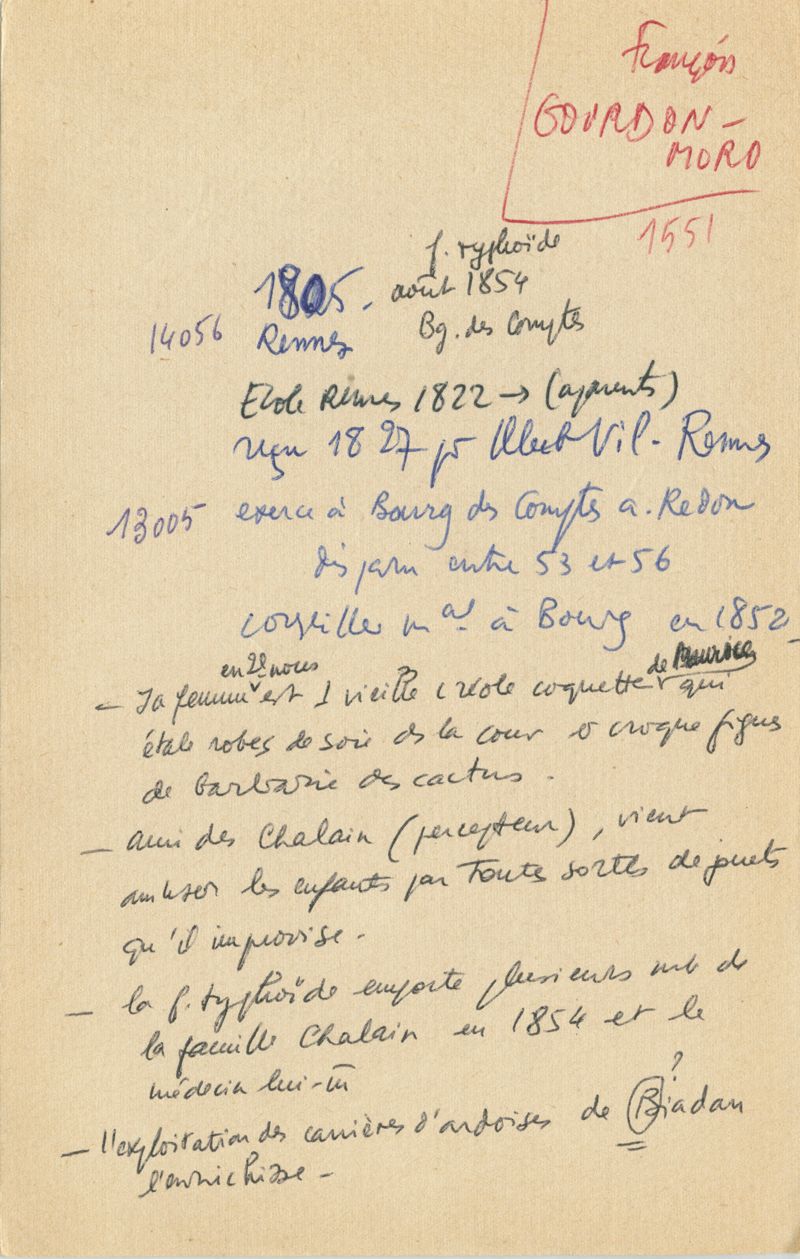 François
GOURDON-
MORO
1551
f. typhoïde
1805. août 1854
14056 Rennes Bg. des Comptes
Ecole Rennes 1822 → (a)
reçu 1827 pr Rennes
13005 exerce à Bourg des Comptes a. Redon
disparu entre 53 et 56
conseiller mal à Bourg en 1852
en 2es noces de Maurice
- sa femme est 1 vieille créole coquette qui
étale robes de soie ds la cour & croque figues
de barbarie des cactus.
- ami des Chalain (percepteur), vient
amuser les enfants par toutes sortes de jouets
qu'il improvise.
- la f. typhoïde emporte plusieurs mb de
la famille Chalain en 1854 et le
médecin lui-m
?
- l'exploitation des carrières d'ardoises de Biadan
l'enrichisse -